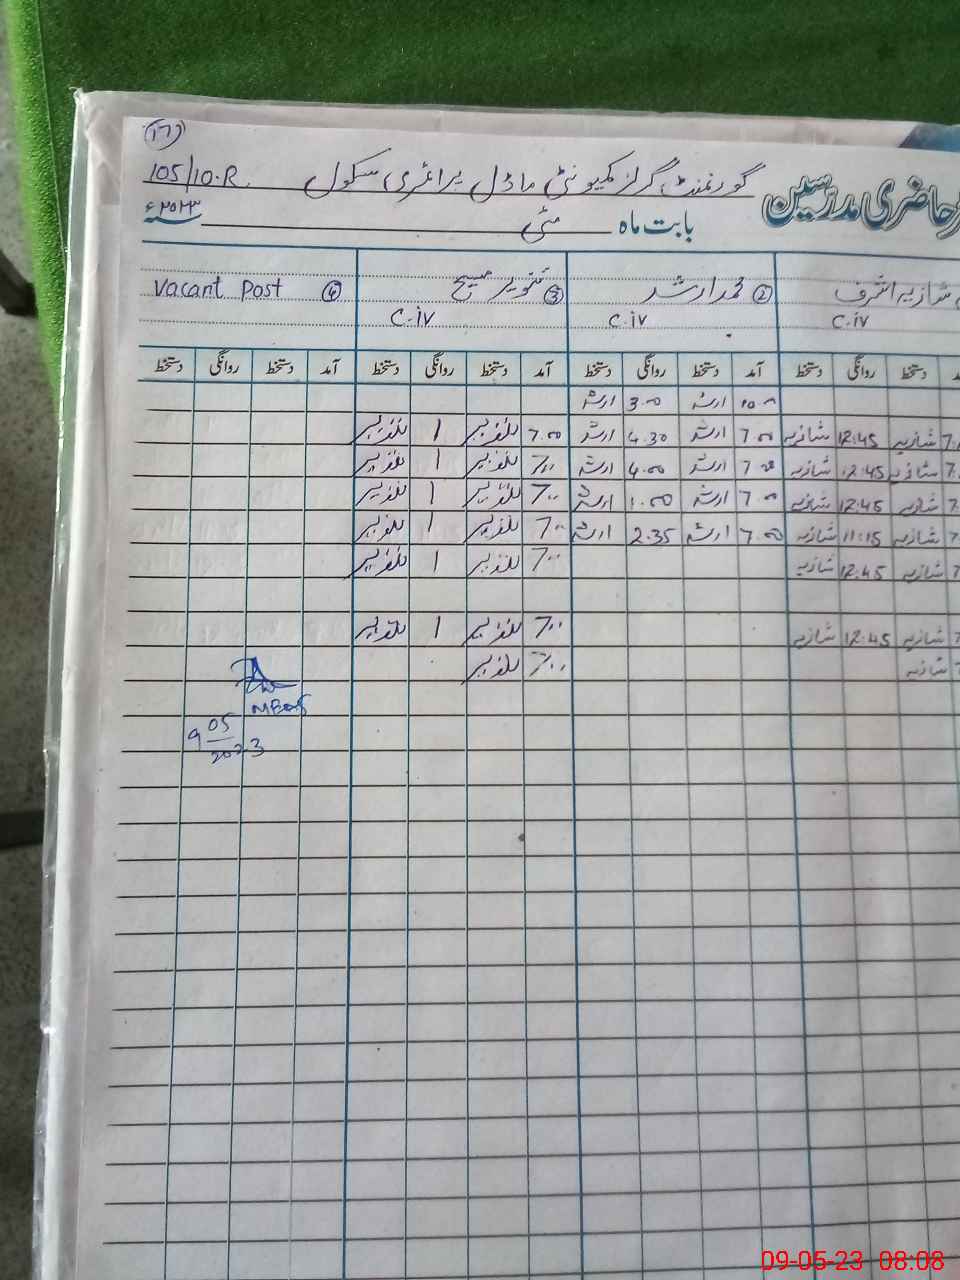 ١٦
گورنمنٹ گرلز کمیونٹی ماڈل پرائمری سکول 105/10.R
حاضری مدرسین
بابت ماہ مئی ۲۰۲۳ء
شازیہ اشرف ② محمد ارشد ③ تنویر مسیح ④ Vacant Post
C.iv C.iv C.iv
دستخط روانگی دستخط آمد دستخط روانگی دستخط آمد دستخط روانگی دستخط آمد دستخط
10.00 ارشد 3.00 ارشد
شازیہ 12:45 شازیہ 7.00 ارشد 4.30 ارشد 7.00 1
شازیہ 12:45 شازیہ 7.00 ارشد 4.00 ارشد 7.00 1
شازیہ 12:45 شازیہ 7.00 ارشد 1.00 ارشد 7.00 1
شازیہ 11:15 شازیہ 7.00 ارشد 2.35 ارشد 7.00 1
شازیہ 12:45 شازیہ 7.00 1
شازیہ 12:45 شازیہ 7.00 1
شازیہ 7.00
9 05
2023
09-05-23 08:08